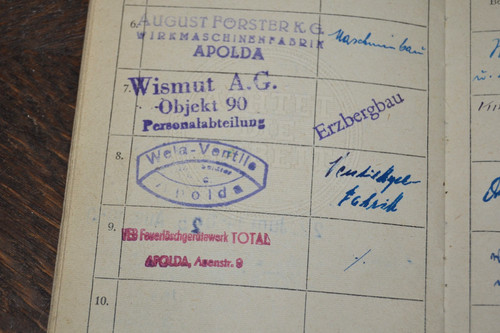 6.
AUGUST FÖRSTER K.G.
WIRKMASCHINENFABRIK
APOLDA
Maschinenbau
7.
Wismut A.G.
Objekt 90
Personalabteilung
Erzbergbau
8.
Wela-Ventile
Apolda
Fabrik
9.
VEB Feuerlöschgerätewerk TOTAL
APOLDA, Auenstr. 9
10.